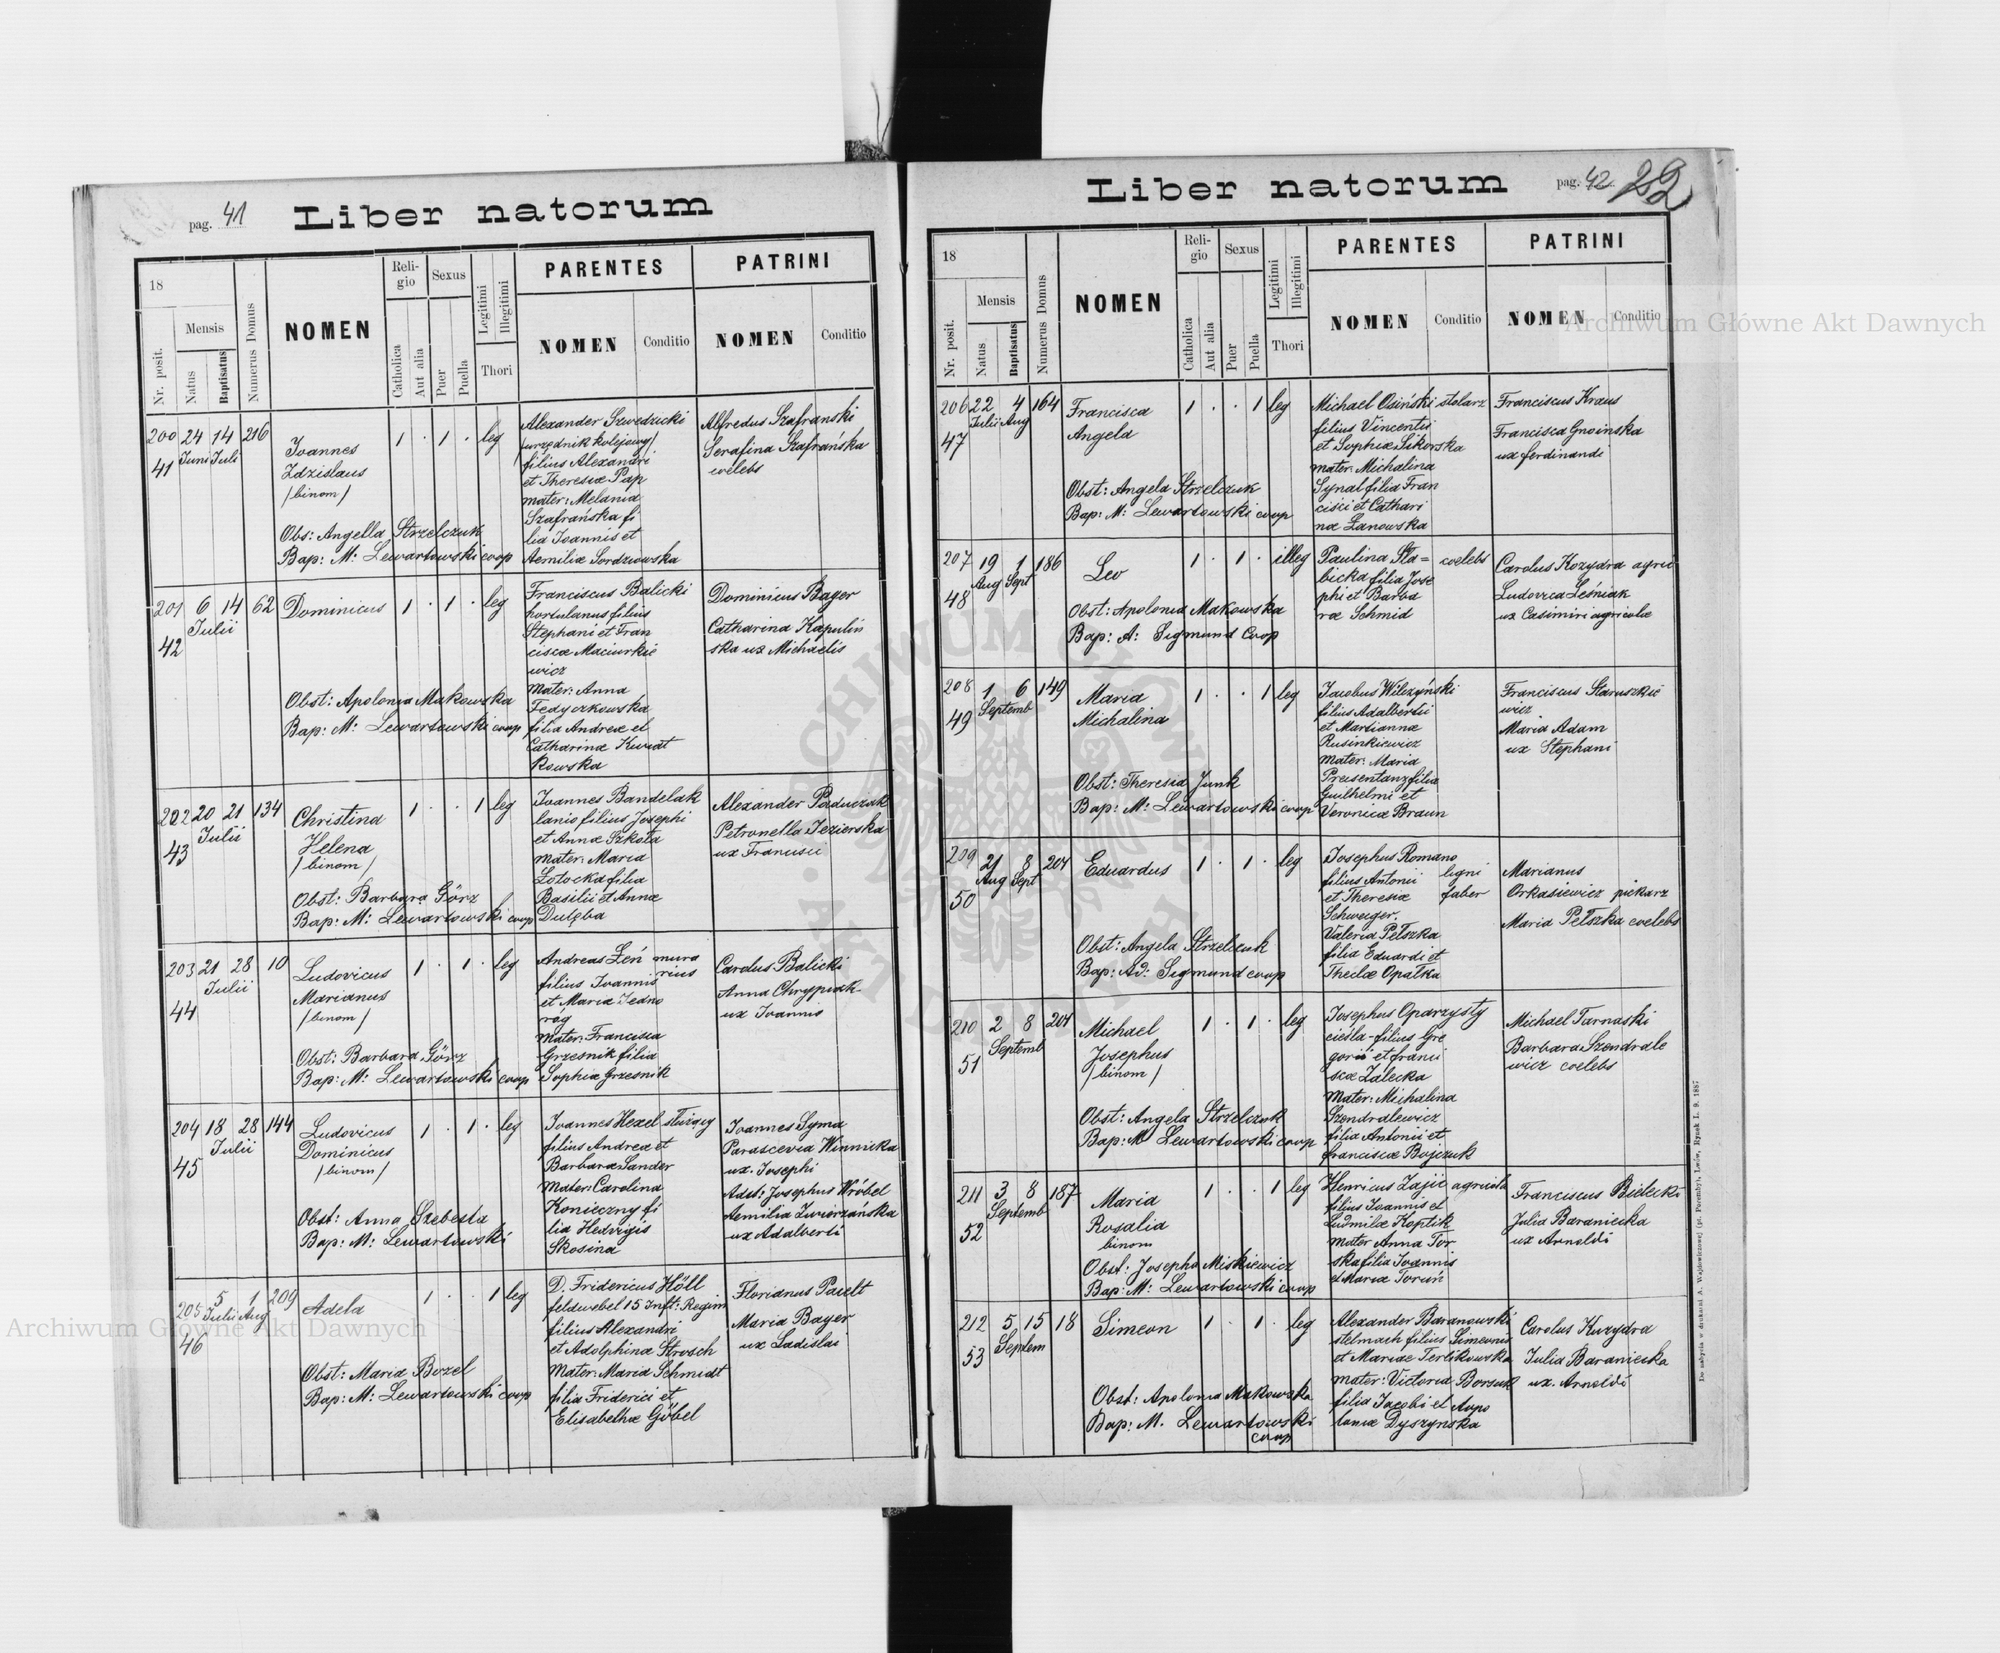 pag. 41
Liber natorum
18
Nr. posit.
Mensis
Natus
Baptisatus
Numerus Domus
NOMEN
Reli-
gio
Catholica
Aut alia
Sexus
Puer
Puella
Legitimi
Illegitimi
Thori
PARENTES
NOMEN
Conditio
PATRINI
NOMEN
Conditio
200 24 14 216
41 Juni Juli
Joannes
Zdzislaus
/binom/
1 . 1 . leg
Obs: Angella Strzelczuk
Bap: M: Lewartowski coop
Alexander Szwedzicki
/urzędnik kolejowy/
filius Alexandri
et Theresiæ Pap
mater: Melania
Szafrańska fi
lia Joannis et
Aemiliæ Sordzowska
Alfredus Szafranski
Serafina Szafrańska
coelebs
201 6 14 62
Julii
42
Dominicus
1 . 1 . leg
Obst: Apolonia Makowska
Bap: M: Lewartowski coop
Franciscus Balicki
hortulanus filius
Stephani et Fran
ciscæ Maciurkie
wicz
Mater: Anna
Fedyczkowska
filia Andreæ et
Catharinæ Kwiat
kowska
Dominicus Bayer
Catharina Kapuliń
ska ux Michaelis
202 20 21 134
Julii
43
Christina
Helena
/binom/
1 . . 1 leg
Obst: Barbara Görz
Bap: M: Lewartowski coop
Joannes Bandelak
lanio filius Josephi
et Annæ Szkoła
mater: Maria
Łotocka filia
Basilii et Annæ
Dulęba
Alexander Paduczak
Petronella Jezierska
ux Francisci
203 21 28 10
Julii
44
Ludovicus
Marianus
/binom/
1 . 1 . leg
Obst: Barbara Görz
Bap: M: Lewartowski coop
Andreas Łeń mura
filius Joannis rius
et Maria Jedno
róg
Mater: Francisca
Grzesnik filia
Sophiæ Grzesnik
Carolus Balicki
Anna Chrypiak
ux Joannis
204 18 28 144
Julii
45
Ludovicus
Dominicus
/binom/
1 . 1 . leg
Obst: Anna Szebesta
Bap: M: Lewartowski
Joannes Hexel służący
filius Andreæ et
Barbaræ Sander
Mater: Carolina
Konieczny fi
lia Hedvigis
Skosina
Joannes Syma
Parascevia Winnicka
ux. Josephi
Adst: Josephus Wróbel
Aemilia Zwierzańska
ux Adalberti
205 5 1 209
Julii Aug
46
Adela
1 . . 1 leg
Obst: Maria Bozel
Bap: M: Lewartowski coop
D. Fridericus Höll
feldwebel 15 Inft: Regim
filius Alexandri
et Adolphinæ Strosch
Mater: Maria Schmidt
filia Friderici et
Elisabethæ Göbel
Florianus Pault
Maria Bayer
ux Ladislai
Liber natorum
pag. 42
22
18
Nr. posit.
Mensis
Natus
Baptisatus
Numerus Domus
NOMEN
Reli-
gio
Catholica
Aut alia
Sexus
Puer
Puella
Legitimi
Illegitimi
Thori
PARENTES
NOMEN
Conditio
PATRINI
NOMEN
Conditio
206 22 4 164
Julii Aug
47
Francisca
Angela
1 . . 1 leg
Obst: Angela Strzelczuk
Bap: M: Lewartowski coop
Michael Osiński stolarz
filius Vincentii
et Sophiæ Sikorska
mater: Michalina
Synal filia Fran
cisci et Cathari
næ Lanowska
Franciscus Kraus
Francisca Gnoinska
ux ferdinandi
207 19 1 186
Aug Sept
48
Leo
1 . 1 . illeg
Obst: Apolonia Makowska
Bap: A: Sigmund Coop
Paulina Sła= coelebs
bicka filia Jose
phi et Barba
ræ Schmid
Carolus Kozydra agric
Ludovica Leśniak
ux Casimiri agricolæ
208 1 6 149
Septemb
49
Maria
Michalina
1 . . 1 leg
Obst: Theresia Junk
Bap: M: Lewartowski coop
Jacobus Wilczyński
filius Adalbertii
et Mariannæ
Rusinkiewicz
Mater: Maria
Preisentanz filia
Guilhelmi et
Veronicæ Braun
Franciscus Staruszkie
wicz
Maria Adam
ux Stephani
209 21 8 204
Aug Sept
50
Eduardus
1 . 1 . leg
Obst: Angela Strzelczuk
Bap: Ad: Sigmund coop
Josephus Romano
filius Antonii ligni
et Theresiæ faber
Schweiger.
Valeria Pełszka
filia Eduardi et
Theclæ Opałka
Marianus
Orkasiewicz piekarz
Maria Pełszka coelebs
210 2 8 204
Septemb
51
Michael
Josephus
/binom/
1 . 1 . leg
Obst: Angela Strzelczuk
Bap: M Lewartowski coop
Josephus Oparzysty
cieśla - filius Gre
gorii et franci
scæ Zalecka
Mater: Michalina
Szendralewicz
filia Antonii et
franciscæ Bojczuk
Michael Tarnaski
Barbara Szendrale
wicz coelebs
211 3 8 187
Septemb
52
Maria
Rosalia
binom
1 . . 1 leg
Obst: Josepha Miskiewicz
Bap: M: Lewartowski coop
Henricus Zajic agricola
filius Joannis et
Ludmilæ Koptik
Mater Anna Tor
ska filia Joannis
et Mariæ Toruń
Franciscus Bielecki
Julia Baraniecka
ux Arnoldi
212 5 15 18
Septem
53
Simeon
1 . 1 . leg
Obst: Apolonia Makowska
Bap: M. Lewartowski
coop
Alexander Baranowski
stelmach filius Simeonis
et Mariæ Terlikowska
Mater: Victoria Borsuk
filia Jacobi et Appo
loniæ Dyszynska
Carolus Kuzydra
Julia Baraniecka
ux. Arnoldi
Do nabycia w drukarni A. Wajdowiczowej (pl. Porembyt, Lwów, Rynek L. 9. 1887
Archiwum Główne Akt Dawnych
Archiwum Główne Akt Dawnych
ARCHIWUM GŁÓWNE AKT DAWNYCH